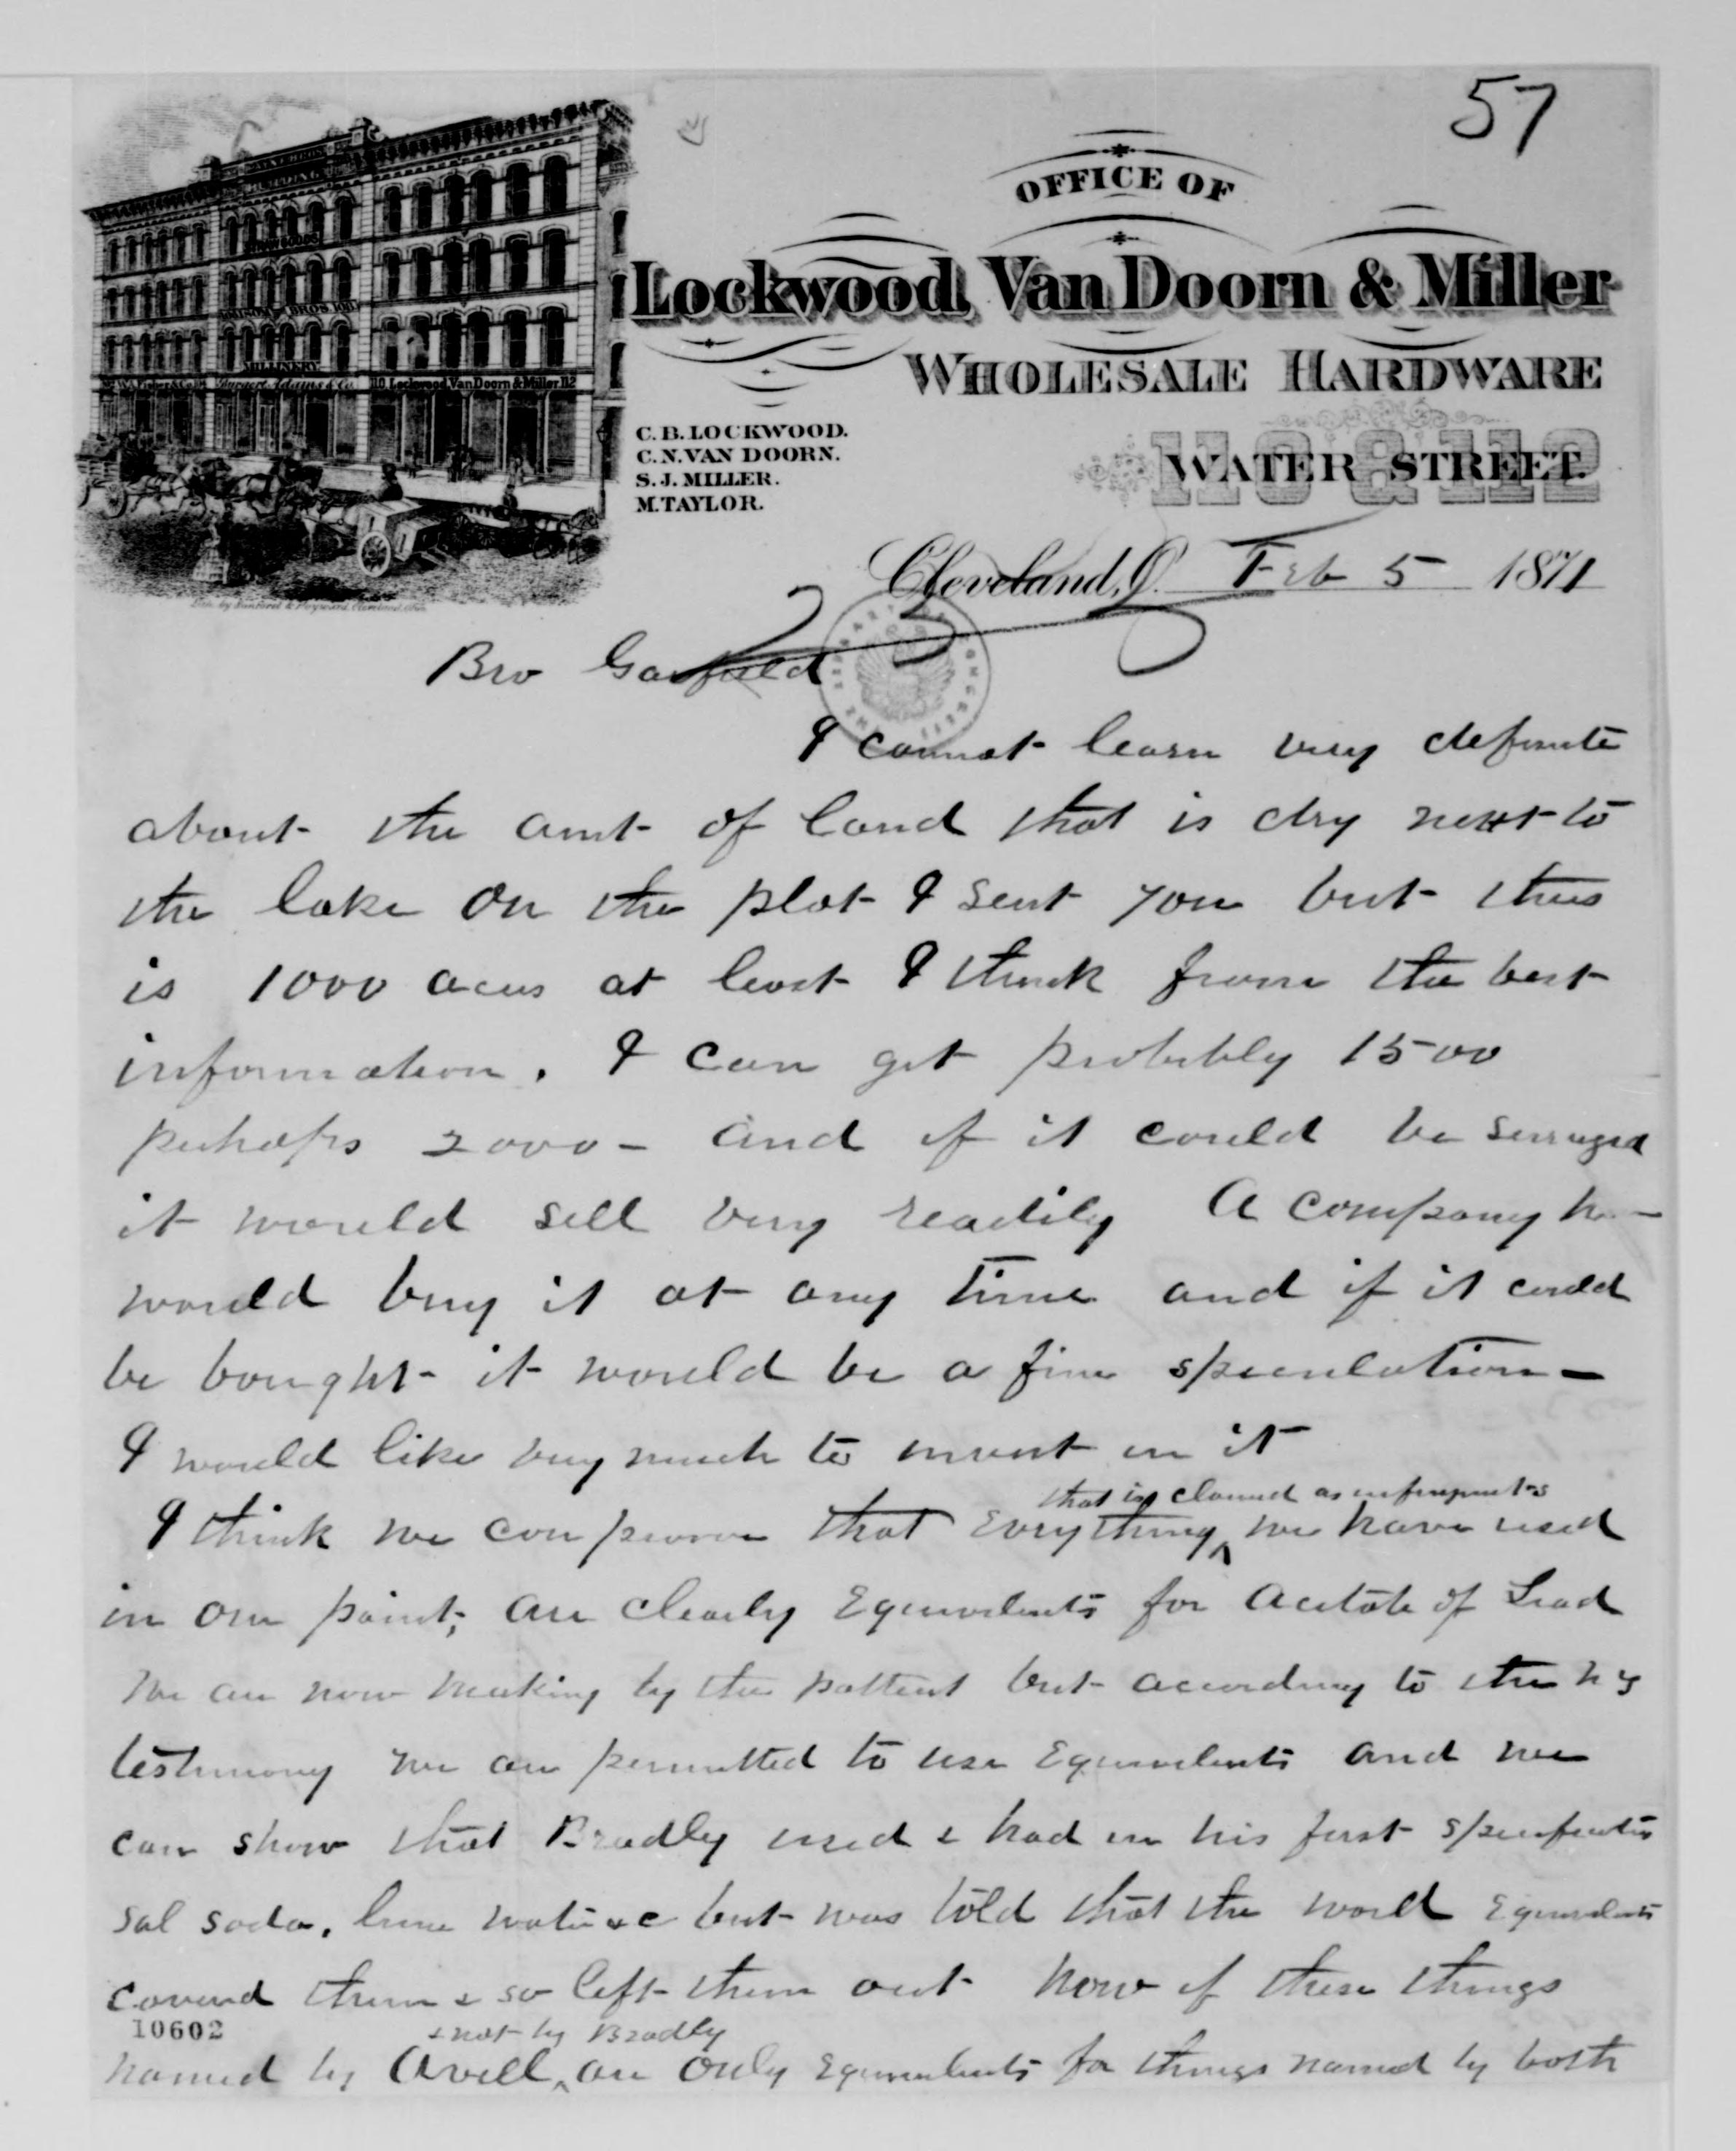 57
OFFICE OF
Lockwood, Van Doorn & Miller
WHOLESALE HARDWARE
110 & 112
WATER STREET.
C. B. LOCKWOOD.
C. N. VAN DOORN.
S. J. MILLER.
M. TAYLOR.
MILLINERY
110 Lockwood, Van Doorn & Miller 112
Cleveland, O. Feb 5 1871
Bro Garfield
I cannot learn very definite
about the amt of land that is dry next to
the lake on the plat I sent you but there
is 1000 acres at least I think from the best
information. I can get probably 1500
perhaps 2000 - and if it could be
it would sell very readily A company
would buy it at any time and if it could
be bought it would be a fine speculation -
I would like very much to invest in it
that is claimed as infringments
I think we can prove that Everything ^ we have used
in our paint, are clearly Equivalents for acetate of Lead
We are now making by the pattent but according to the
testimony we are permitted to use Equivalents and we
can show that Bradly used & had in his first
sal soda, lime water &c but was told that the word Equivalents
covered them & so left them out now if these things
10602
& not by Bradly
named by Avrill ^ are only Equivalents for things named by both